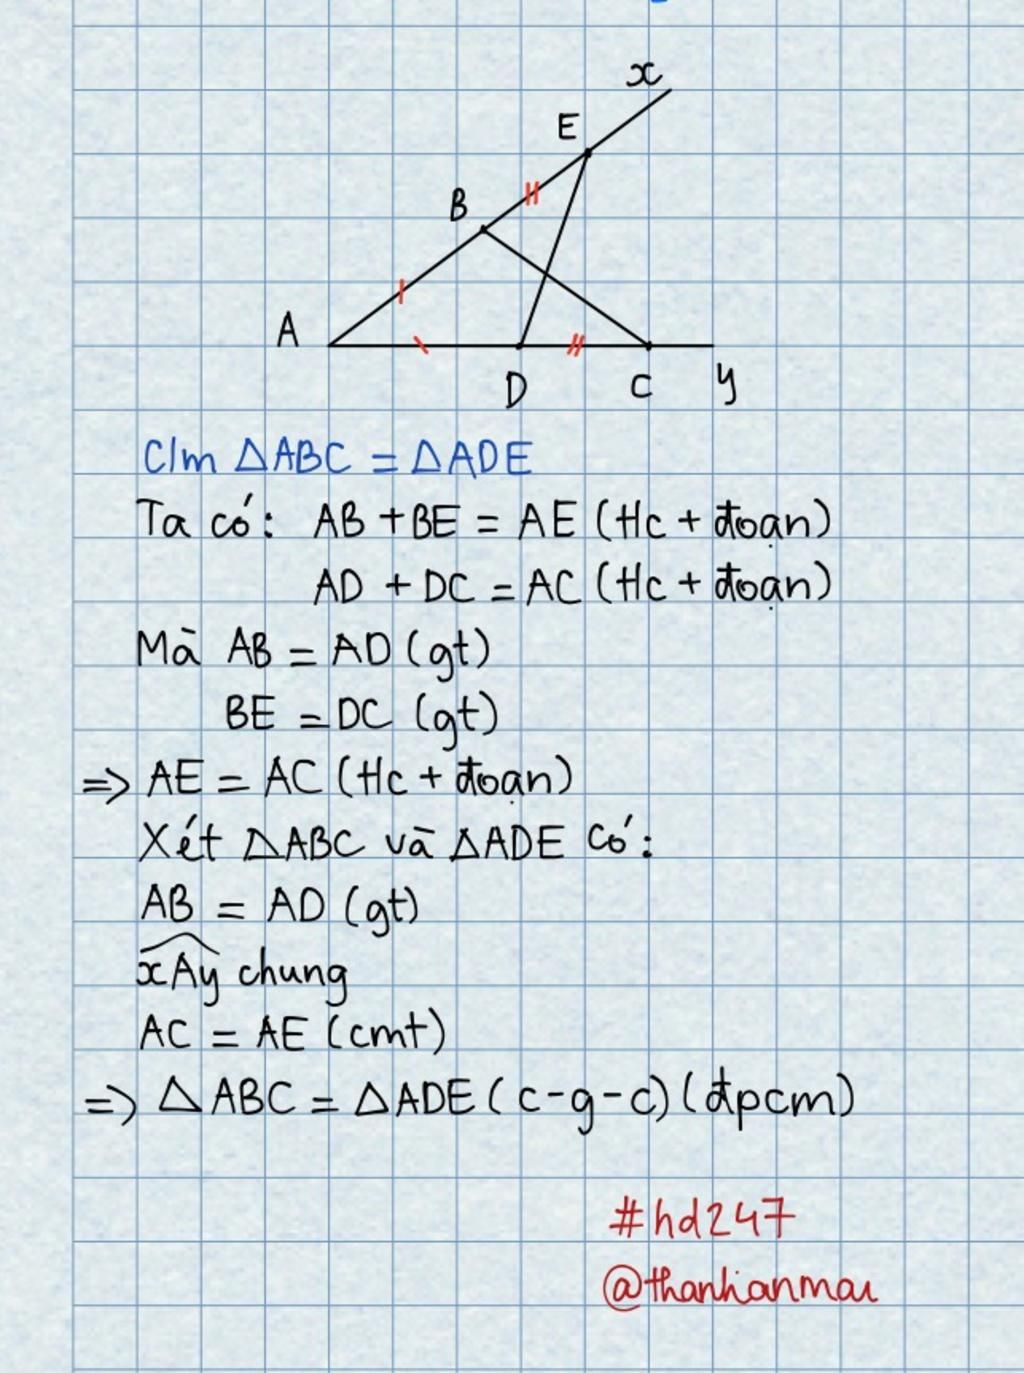 x
E
B
A
D
C
y
C/m △ABC = △ADE
Ta có: AB + BE = AE (Hc + đoạn)
AD + DC = AC (Hc + đoạn)
Mà AB = AD (gt)
BE = DC (gt)
=> AE = AC (Hc + đoạn)
Xét △ABC và △ADE có:
AB = AD (gt)
xAy chung
AC = AE (cmt)
=> △ABC = △ADE (c-g-c) (đpcm)
#hd247
@thanhanmai